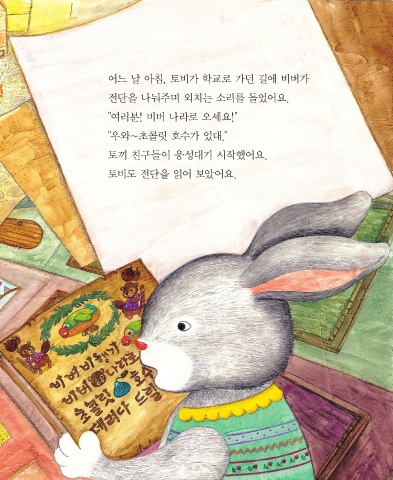 어느 날 아침, 토비가 학교로 가던 길에 비버가
전단을 나눠주며 외치는 소리를 들었어요.
"여러분! 비버 나라로 오세요!"
"우와~초콜릿 호수가 있대."
토끼 친구들이 웅성대기 시작했어요.
토비도 전단을 읽어 보았어요.
비버 비행기
비버 나라로
초콜릿 호수
데려다 드림